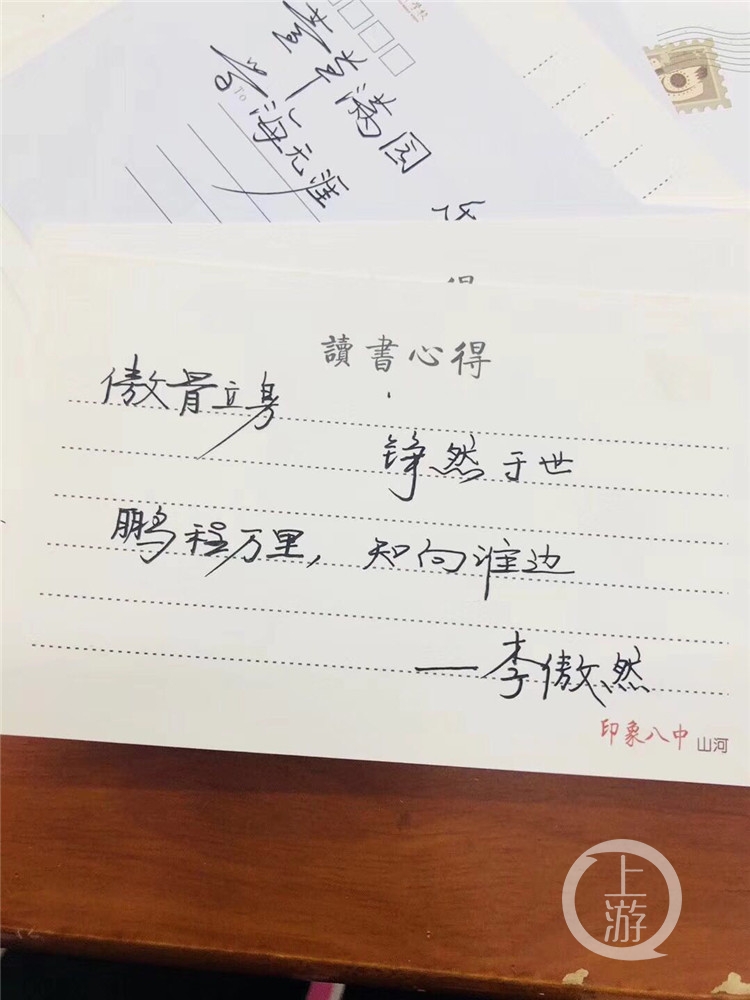 菁华满园
学海无涯
To
讀書心得
傲骨立身
铮然于世
鹏程万里，知向谁边
—李傲然
印象八中 山河
上游